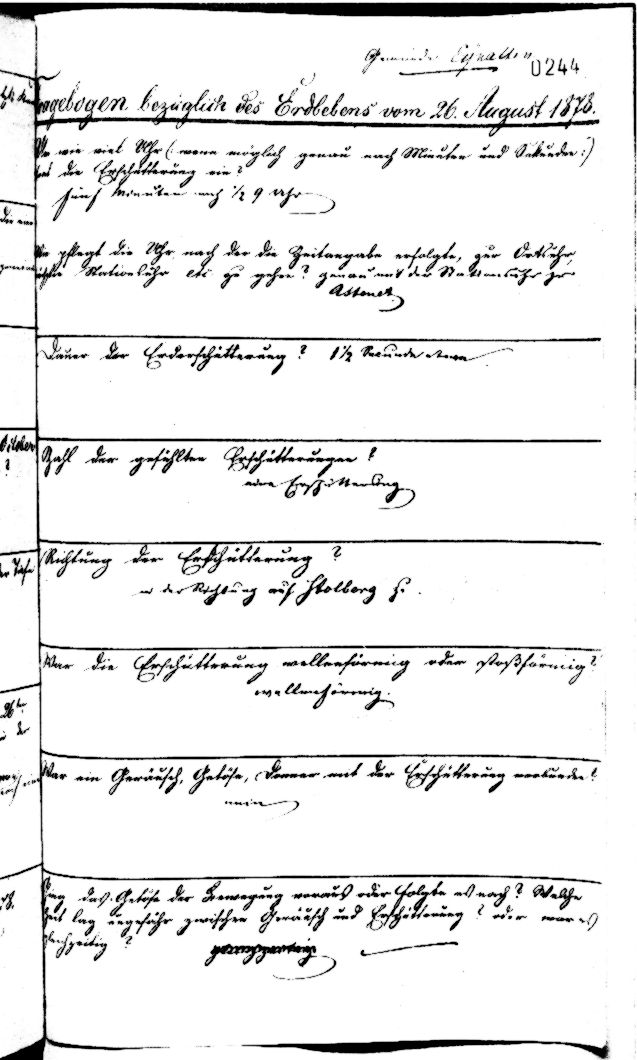 Gemeinde Eynatten
0244
Fragebogen bezüglich des Erdbebens vom 26. August 1878.
Um wie viel Uhr (: wenn möglich genau nach Minuten und Sekunden :)
trat die Erschütterung ein?
fünf Minuten nach ½ 9 Uhr
Wie pflegt die Uhr nach der die Zeitangabe erfolgte, zur Ortsuhr,
Stationsuhr etc zu gehen? genau mit der Stationsuhr zu
Astenet
Dauer der Erderschütterung? 1½ Secunde etwa
Zahl der gefühlten Erschütterungen?
eine Erschütterung
Richtung der Erschütterung?
in der Richtung auf Stolberg zu.
War die Erschütterung wellenförmig oder stoßförmig?
wellenförmig.
War ein Geräusch, Getöse, Donner mit der Erschütterung verbunden?
nein
Ging das Getöse der Bewegung voraus oder folgte es nach? Welche
Zeit lag ungefähr zwischen Geräusch und Erschütterung? oder war es
gleichzeitig?